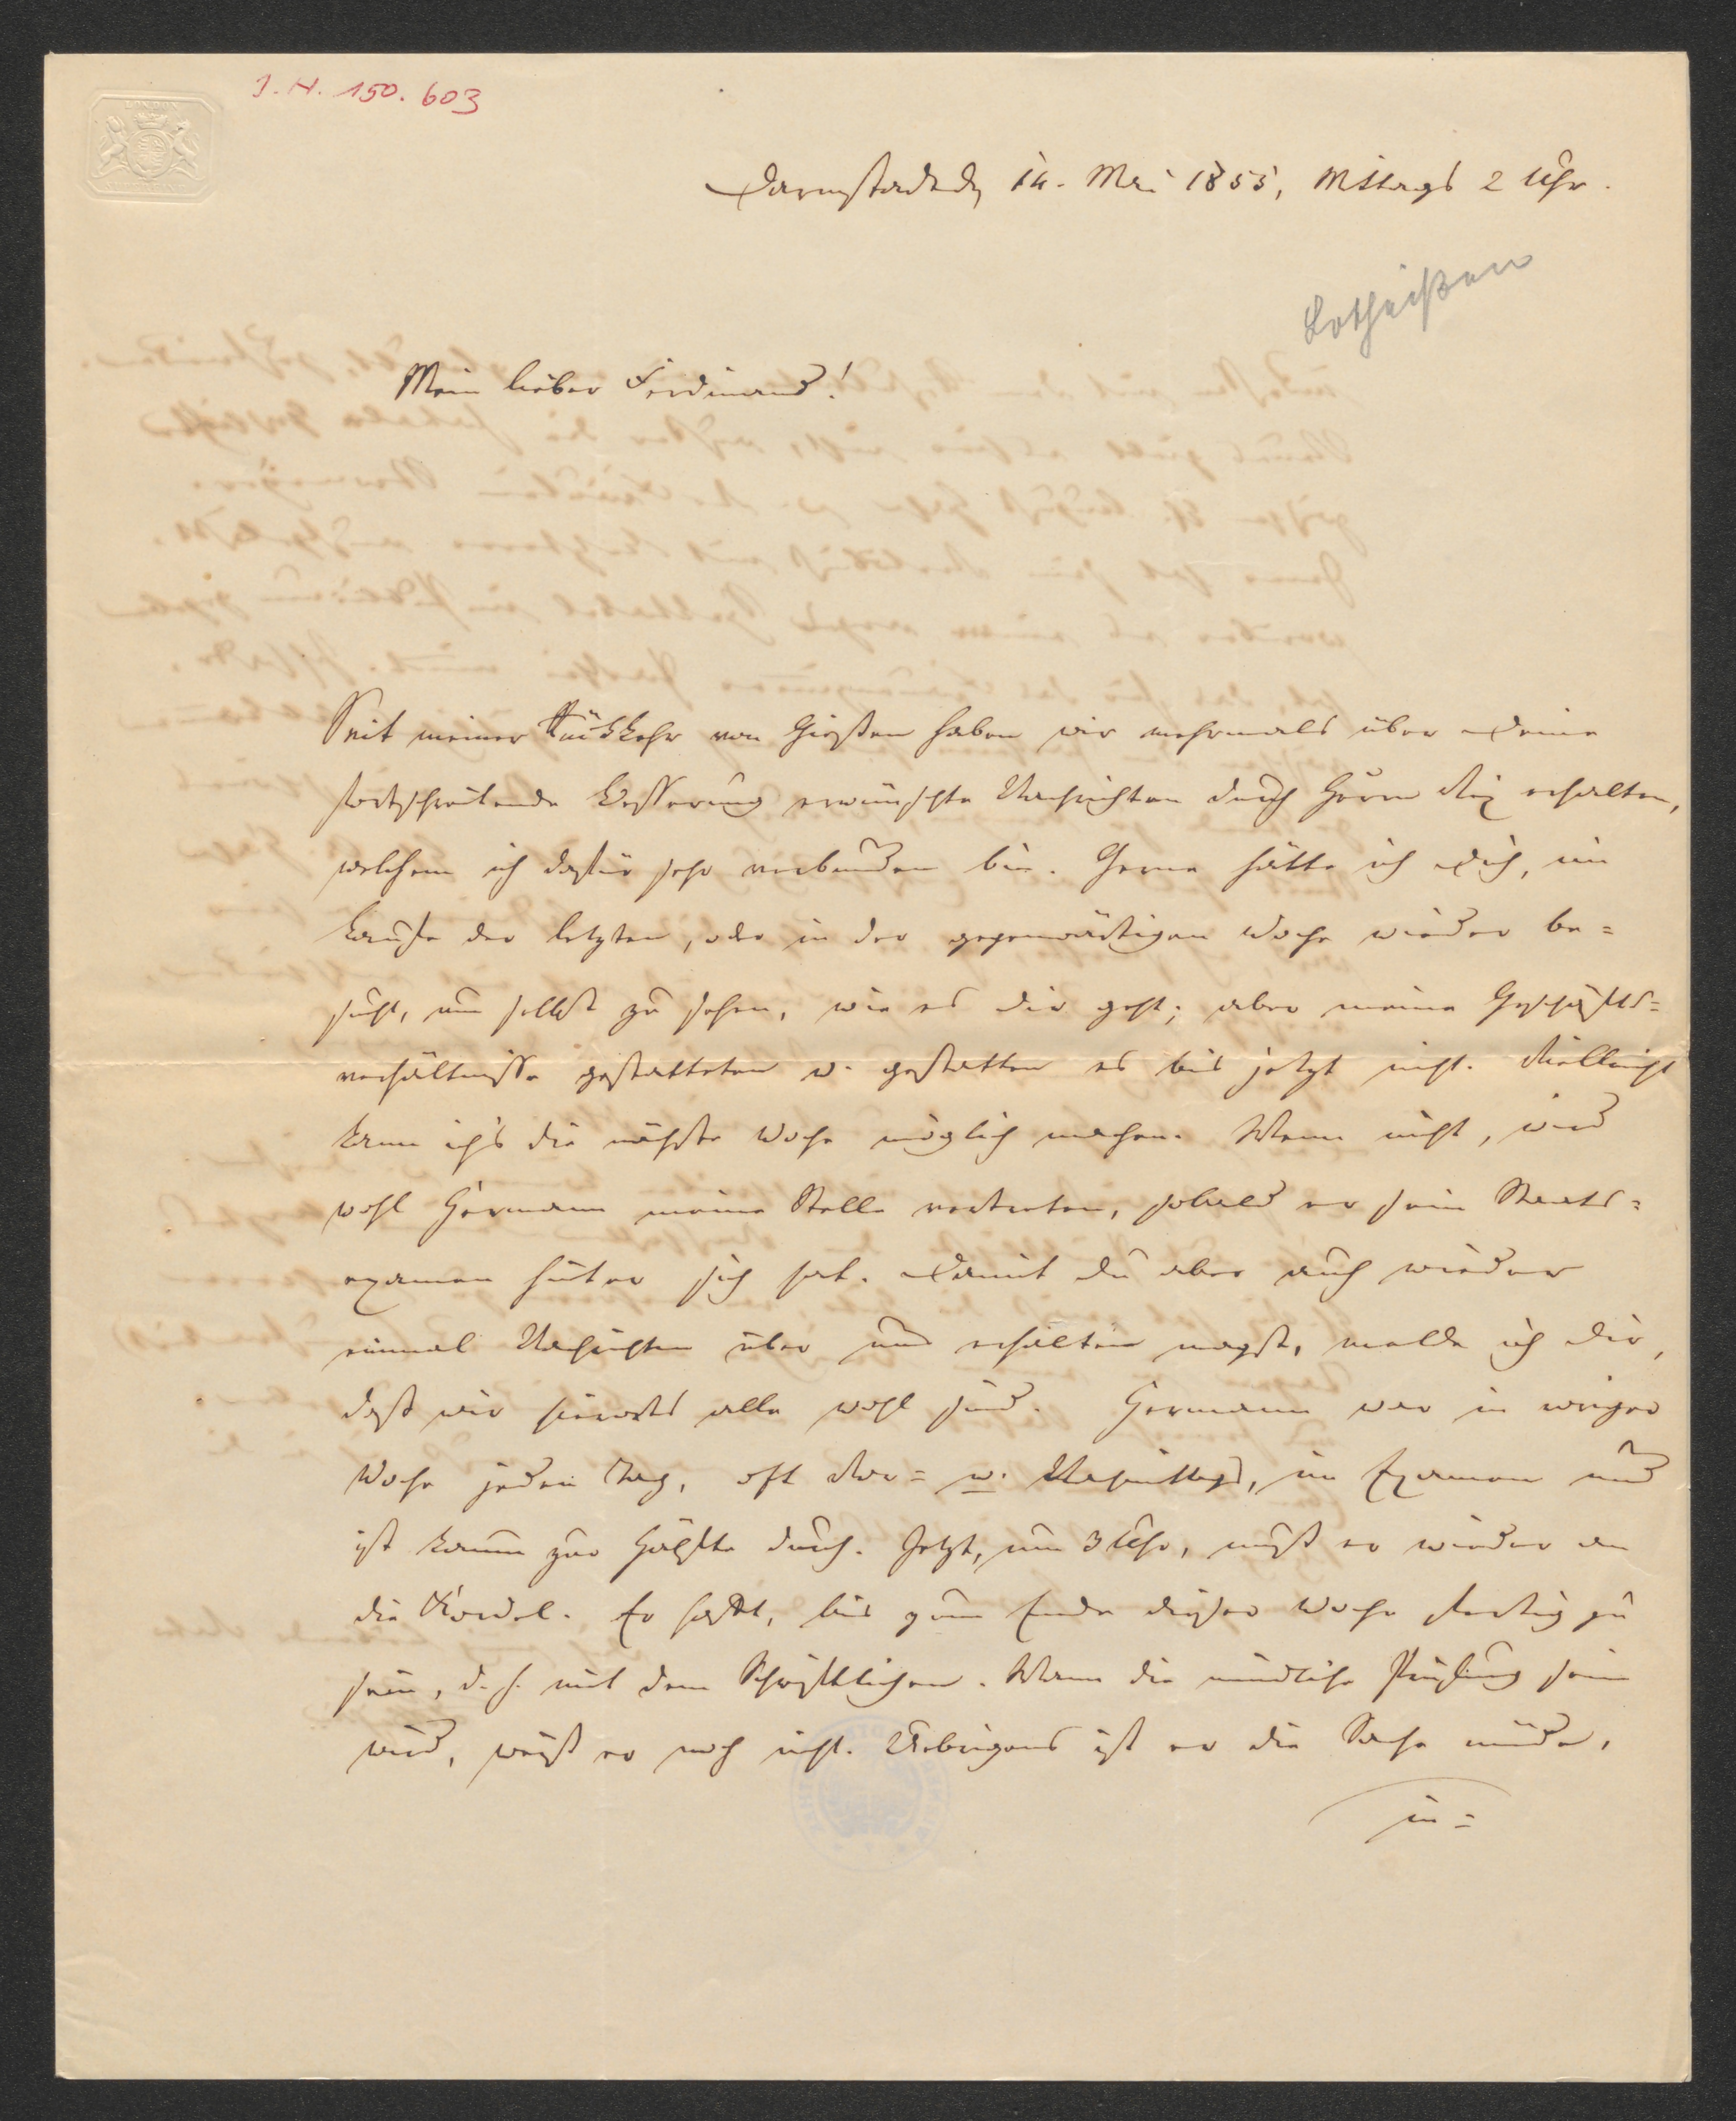 J. N. 150.603
LONDON
Darmstadt d. 14. Mai 1855, Mittags 2 Uhr.
Lotheißen
Mein lieber Ferdinand!
Seit meiner Rückkehr von Gießen haben wir mehrmals über Deine
fortschreitende Besserung erwünschte Nachrichten durch Herrn Rix erhalten,
welchem ich dafür sehr verbunden bin. Gerne hätte ich Dich, im
Laufe der letzten, oder in der gegenwärtigen Woche wieder be=
sucht, um selbst zu sehen, wie es Dir geht; aber meine Geschäfts=
verhältnisse gestatteten u. gestatten es bis jetzt nicht. Vielleicht
kann ich's die nächste Woche möglich machen. Wenn nicht, wird
wohl Hermann meine Stelle vertreten, sobald er sein Staats=
examen hinter sich hat. Damit Du aber auch wieder
einmal Nachrichten über uns erhalten magst, melde ich Dir,
daß wir hierorts alle wohl sind. Hermann war in voriger
Woche jeden Tag, oft Vor= u. Nachmittags, im Examen und
ist kaum zur Hälfte durch. Jetzt, um 3 Uhr, muß er wieder an
die Kordel. Er hofft, bis zum Ende dieser Woche fertig zu
sein, d. h. mit dem Schriftlichen. Wann die mündliche Prüfung sein
wird, weiß er noch nicht. Uebrigens ist er die Sache müde,
in=